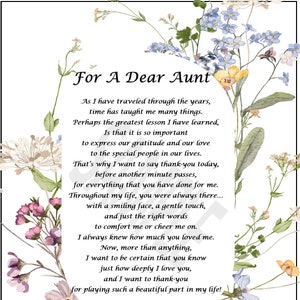 For A Dear Aunt
As I have traveled through the years,
time has taught me many things.
Perhaps the greatest lesson I have learned,
Is that it is so important
to express our gratitude and our love
to the special people in our lives.
That's why I want to say thank-you today,
before another minute passes,
for everything that you have done for me.
Throughout my life, you were always there...
with a smiling face, a gentle touch,
and just the right words
to comfort me or cheer me on.
I always knew how much you loved me.
Now, more than anything,
I want to be certain that you know
just how deeply I love you,
and I want to thank-you
for playing such a beautiful part in my life!